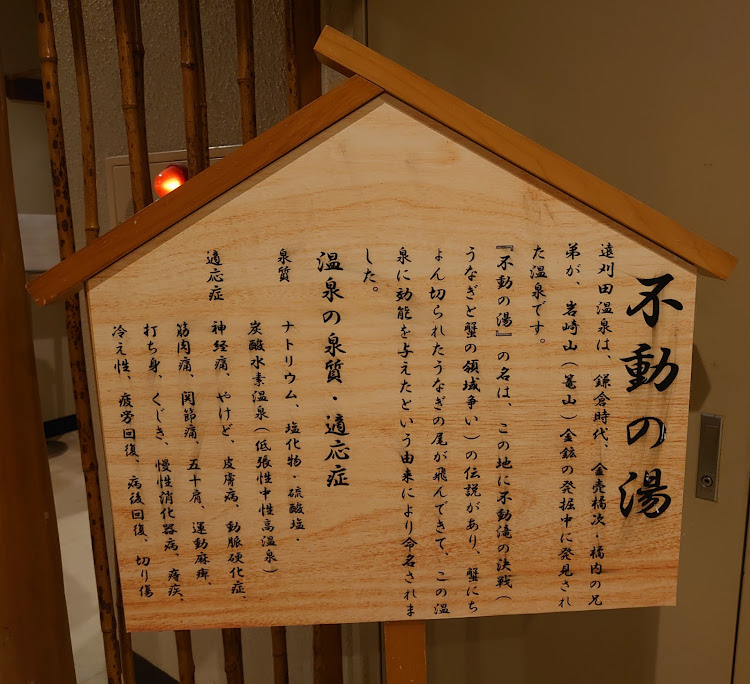 不動の湯
遠刈田温泉は、鎌倉時代、金売橘次・橘内の兄
弟が、岩崎山(篭山)金鉱の発掘中に発見され
た温泉です。
『不動の湯』の名は、この地に不動滝の決戦(
うなぎと蟹の領域争い)の伝説があり、蟹にち
ょん切られたうなぎの尾が飛んできて、この温
泉に効能を与えたという由来により命名されま
した。
温泉の泉質・適応症
泉質
ナトリウム、塩化物・硫酸塩・
炭酸水素温泉(低張性中性高温泉)
適応症
神経痛、やけど、皮膚病、動脈硬化症、
筋肉痛、関節痛、五十肩、運動麻痺、
打ち身、くじき、慢性消化器病、痔疾、
冷え性、疲労回復、病後回復、切り傷